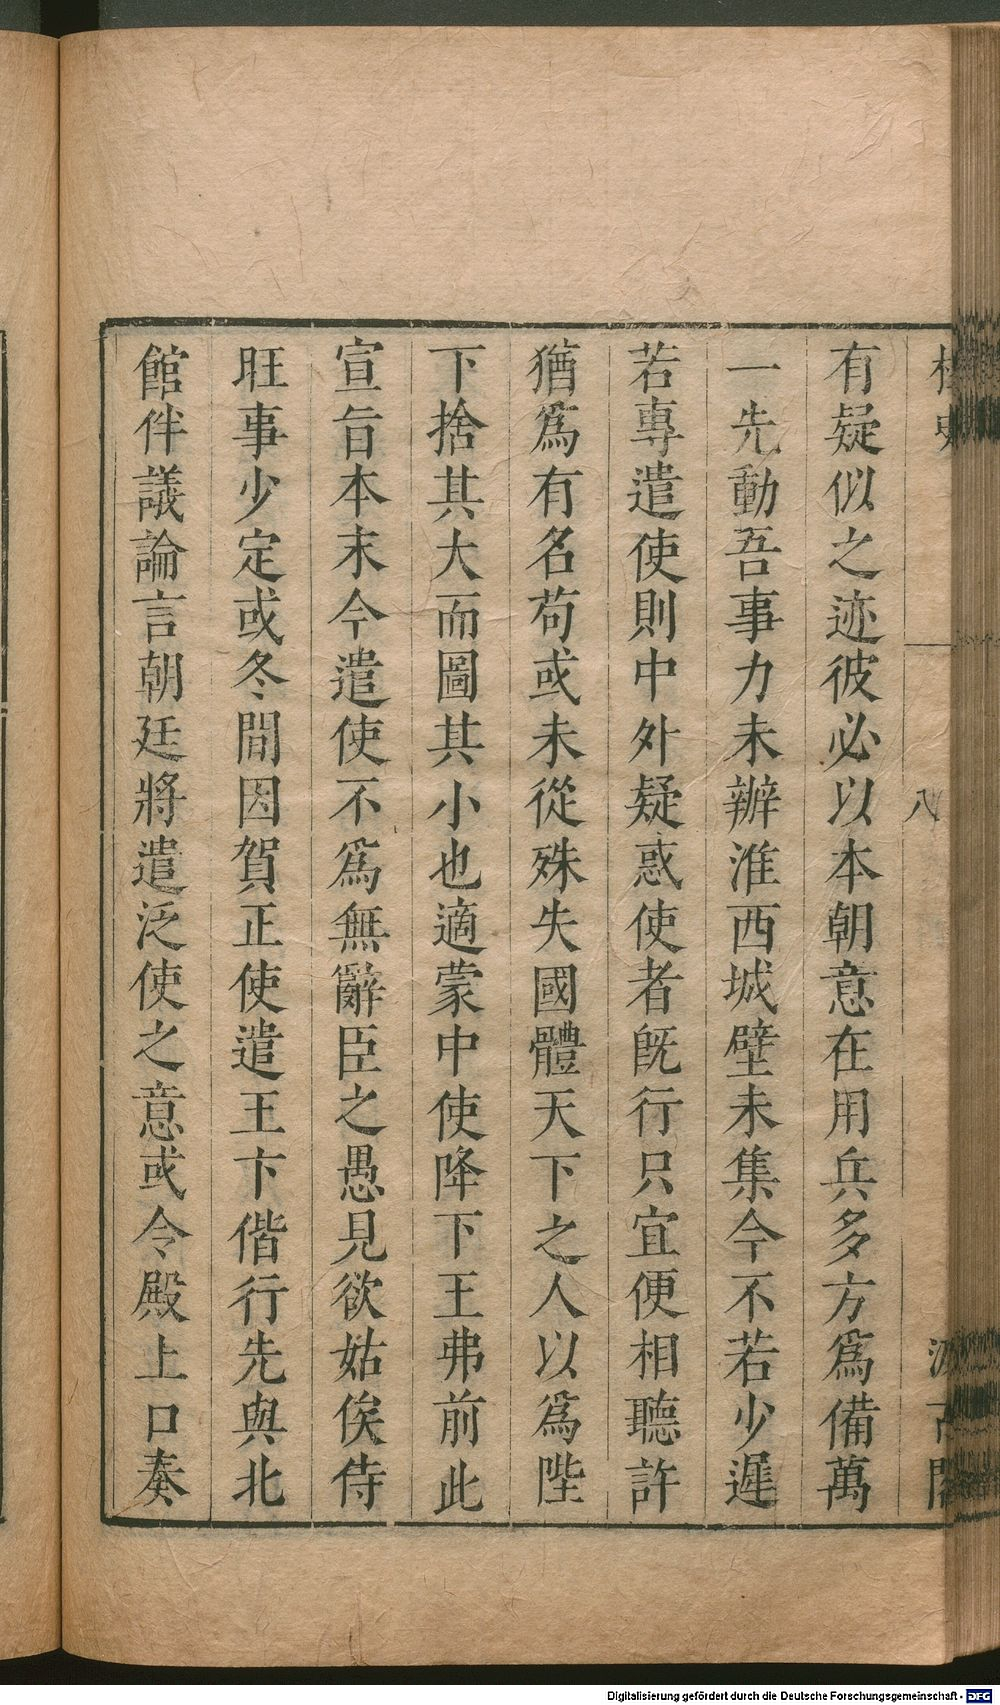 有疑似之迹彼必以本朝意在用兵多方爲備萬
一先動吾事力未辦淮西城壁未集今不若少遲
若專遣使則中外疑惑使者旣行只宜便相聽許
猶爲有名苟或未從殊失國體天下之人以爲陛
下捨其大而圖其小也適蒙中使降下王弗前此
宣旨本末今遣使不爲無辭臣之愚見欲姑俟侍
旺事少定或冬間因賀正使遣王卞偕行先與北
館伴議論言朝廷將遣泛使之意或令殿上口奏
八
Digitalisierung gefördert durch die Deutsche Forschungsgemeinschaft - DFG